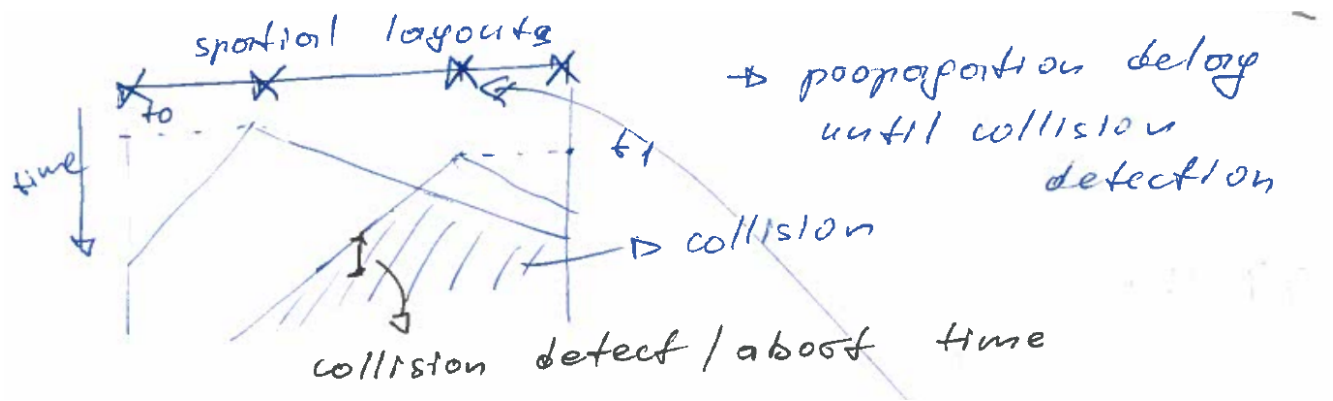 spatial layouts
→ propagation delay
until collision
detection
t0
t1
time
collision
collision detect / abort time